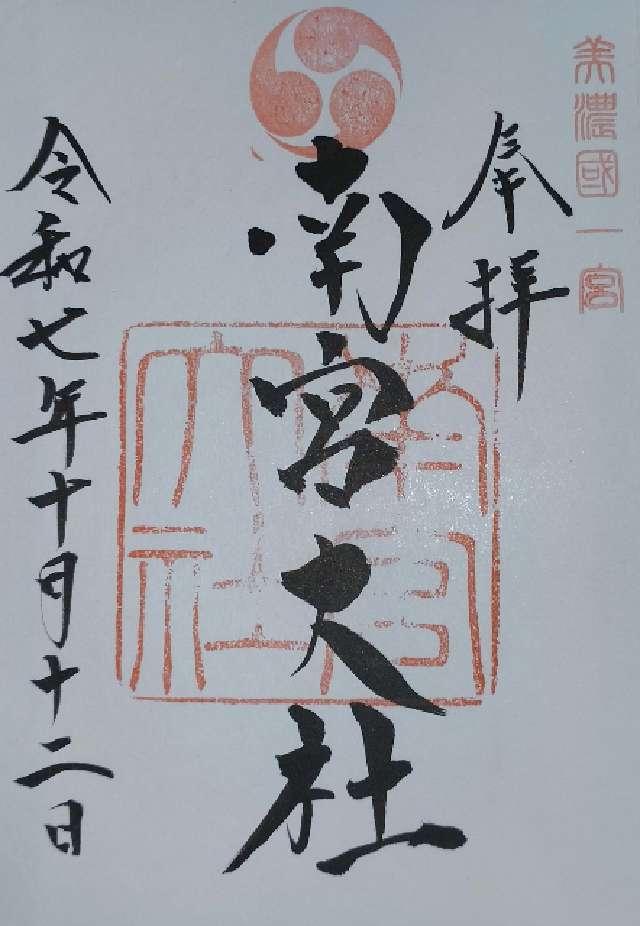 美濃國一宮
奉拝
南宮大社
南宮大社
令和七年十月十二日